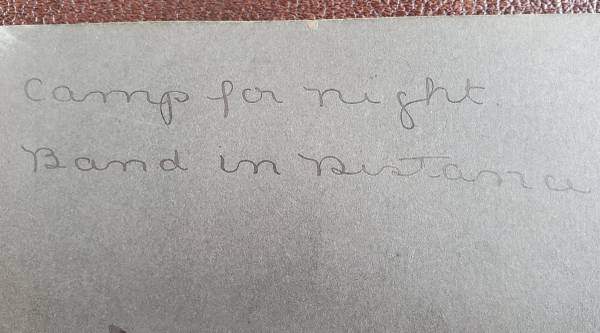 Camp for night.
Band in Distance